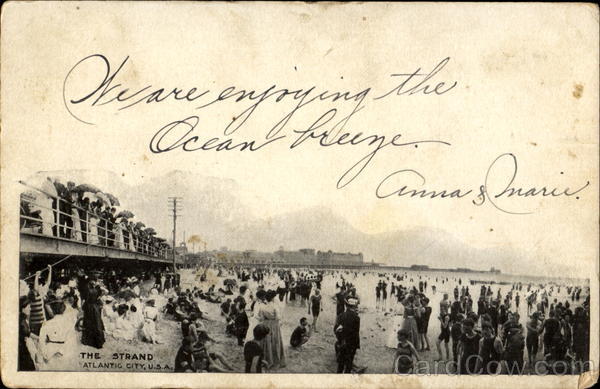 We are enjoying the
Ocean breeze.
Anna & Marie.
THE STRAND
ATLANTIC CITY, U.S.A.
CardCow.com